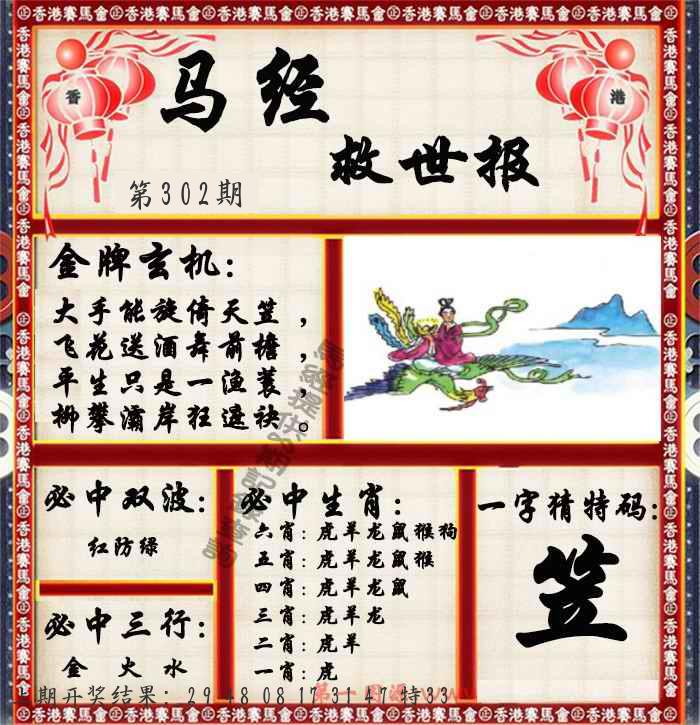 香港賽馬會 香港賽馬會 香港賽馬會 香港賽馬會 香港賽馬會 香港賽馬會
香 港
马经
救世报
第302期
金牌玄机：
大手能旋倚天笠，
飞花送酒舞前檐，
平生只是一渔蓑，
柳攀灞岸狂遮袂。
必中双波：
红防绿
必中三行：
金 火 水
必中生肖：
六肖：虎羊龙鼠猴狗
五肖：虎羊龙鼠猴
四肖：虎羊龙鼠
三肖：虎羊龙
二肖：虎羊
一肖：虎
一字猜特码：
笠
期开奖结果：29 48 08 17 31 47 特33
第一图源